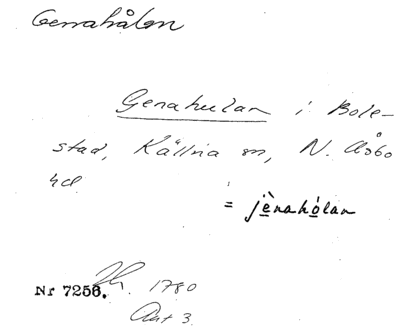 Genahålan
Genahulan i Bole-
stad, Källna sn, N. Åsbo
hd
= jènahólan
Nr 7256. 1780
Ant 3.